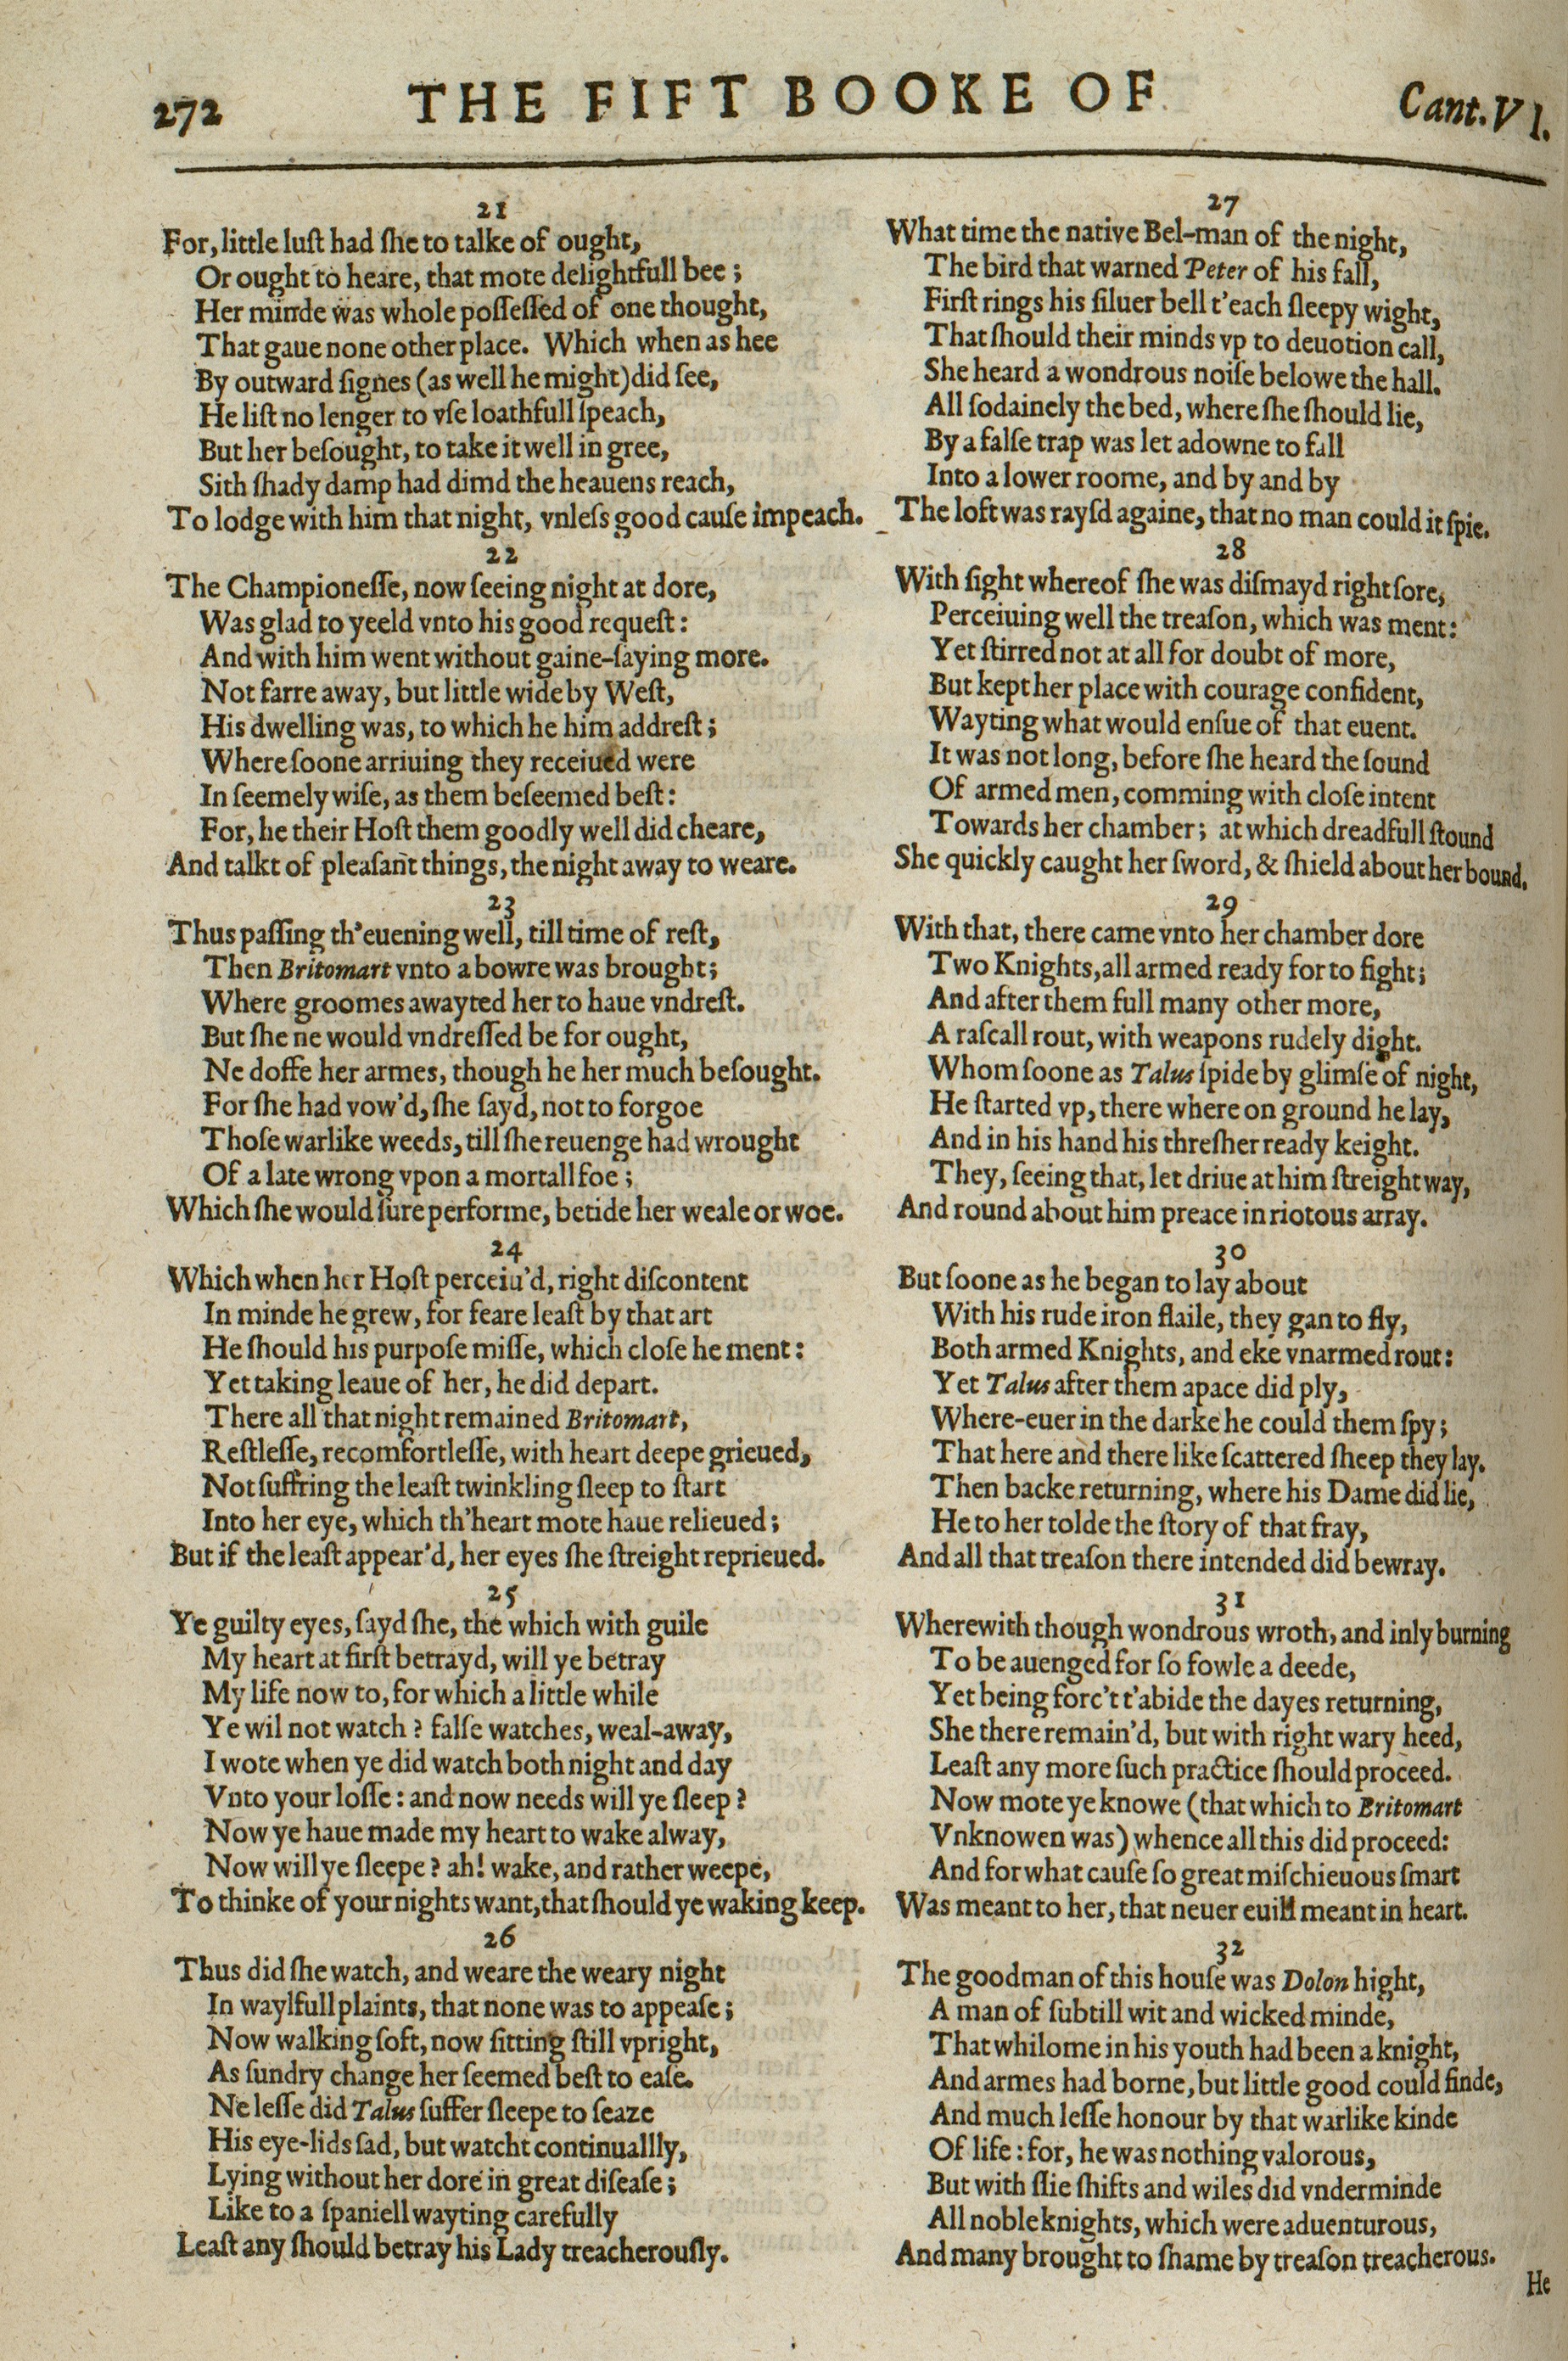 272
THE FIFT BOOKE OF
Cant. VI.
21
For, little luſt had ſhe to talke of ought,
Or ought to heare, that mote delightfull bee;
Her minde was whole poſſeſſed of one thought,
That gaue none other place. Which when as hee
By outward ſignes (as well he might) did ſee,
He liſt no lenger to vſe loathfull ſpeach,
But her beſought, to take it well in gree,
Sith ſhady damp had dimd the heauens reach,
To lodge with him that night, vnleſs good cauſe impeach.
22
The Championeſſe, now ſeeing night at dore,
Was glad to yeeld vnto his good requeſt:
And with him went without gaine-ſaying more.
Not farre away, but little wide by Weſt,
His dwelling was, to which he him addreſt;
Where ſoone arriuing they receiued were
In ſeemely wiſe, as them beſeemed beſt:
For, he their Hoſt them goodly well did cheare,
And talkt of pleaſant things, the night away to weare.
23
Thus paſſing th'euening well, till time of reſt,
Then Britomart vnto a bowre was brought;
Where groomes awayted her to haue vndreſt.
But ſhe ne would vndreſſed be for ought,
Ne doffe her armes, though he her much beſought.
For ſhe had vow'd, ſhe ſayd, not to forgoe
Thoſe warlike weeds, till ſhe reuenge had wrought
Of a late wrong vpon a mortall foe;
Which ſhe would ſure performe, betide her weale or woe.
24
Which when her Hoſt perceiu'd, right diſcontent
In minde he grew, for feare leaſt by that art
He ſhould his purpoſe miſſe, which cloſe he ment:
Yet taking leaue of her, he did depart.
There all that night remained Britomart,
Reſtleſſe, recomfortleſſe, with heart deepe grieued,
Not ſuffring the leaſt twinkling ſleep to ſtart
Into her eye, which th'heart mote haue relieued;
But if the leaſt appear'd, her eyes ſhe ſtreight reprieued.
25
Ye guilty eyes, ſayd ſhe, the which with guile
My heart at firſt betrayd, will ye betray
My life now to, for which a little while
Ye wil not watch? falſe watches, weal-away,
I wote when ye did watch both night and day
Vnto your loſſe: and now needs will ye ſleep?
Now ye haue made my heart to wake alway,
Now will ye ſleepe? ah! wake, and rather weepe,
To thinke of your nights want, that ſhould ye waking keep.
26
Thus did ſhe watch, and weare the weary night
In waylfull plaints, that none was to appeaſe;
Now walking ſoft, now ſitting ſtill vpright,
As ſundry change her ſeemed beſt to eaſe.
Ne leſſe did Talus ſuffer ſleepe to ſeaze
His eye-lids ſad, but watcht continuallly,
Lying without her dore in great diſeaſe;
Like to a ſpaniell wayting carefully
Leaſt any ſhould betray his Lady treacherouſly.
27
What time the native Bel-man of the night,
The bird that warned Peter of his fall,
Firſt rings his ſiluer bell t'each ſleepy wight,
That ſhould their minds vp to deuotion call,
She heard a wondrous noiſe belowe the hall.
All ſodainely the bed, where ſhe ſhould lie,
By a falſe trap was let adowne to fall
Into a lower roome, and by and by
The loft was rayſd againe, that no man could it ſpie.
28
With ſight whereof ſhe was diſmayd right ſore,
Perceiuing well the treaſon, which was ment:
Yet ſtirred not at all for doubt of more,
But kept her place with courage confident,
Wayting what would enſue of that euent.
It was not long, before ſhe heard the ſound
Of armed men, comming with cloſe intent
Towards her chamber; at which dreadfull ſtound
She quickly caught her ſword, & ſhield about her bound.
29
With that, there came vnto her chamber dore
Two Knights, all armed ready for to fight;
And after them full many other more,
A raſcall rout, with weapons rudely dight.
Whom ſoone as Talus ſpide by glimſe of night,
He ſtarted vp, there where on ground he lay,
And in his hand his threſher ready keight.
They, ſeeing that, let driue at him ſtreight way,
And round about him preace in riotous array.
30
But ſoone as he began to lay about
With his rude iron flaile, they gan to fly,
Both armed Knights, and eke vnarmed rout:
Yet Talus after them apace did ply,
Where-euer in the darke he could them ſpy;
That here and there like ſcattered ſheep they lay.
Then backe returning, where his Dame did lie,
He to her tolde the ſtory of that fray,
And all that treaſon there intended did bewray.
31
Wherewith though wondrous wroth, and inly burning
To be auenged for ſo fowle a deede,
Yet being forc't t'abide the dayes returning,
She there remain'd, but with right wary heed,
Leaſt any more ſuch practice ſhould proceed.
Now mote ye knowe (that which to Britomart
Vnknowen was) whence all this did proceed:
And for what cauſe ſo great miſchieuous ſmart
Was meant to her, that neuer euill meant in heart.
32
The goodman of this houſe was Dolon hight,
A man of ſubtill wit and wicked minde,
That whilome in his youth had been a knight,
And armes had borne, but little good could finde,
And much leſſe honour by that warlike kinde
Of life: for, he was nothing valorous,
But with ſlie ſhifts and wiles did vnderminde
All noble knights, which were aduenturous,
And many brought to ſhame by treaſon treacherous.
He